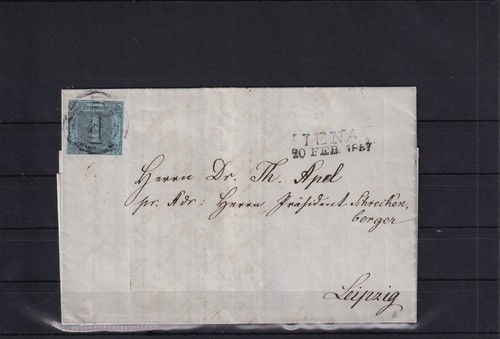 1
JENA
20 FEB. 1857
Herrn Dr. Th. Apel
pr. Adr: Herrn Präsident Schrecken,
berger
Leipzig